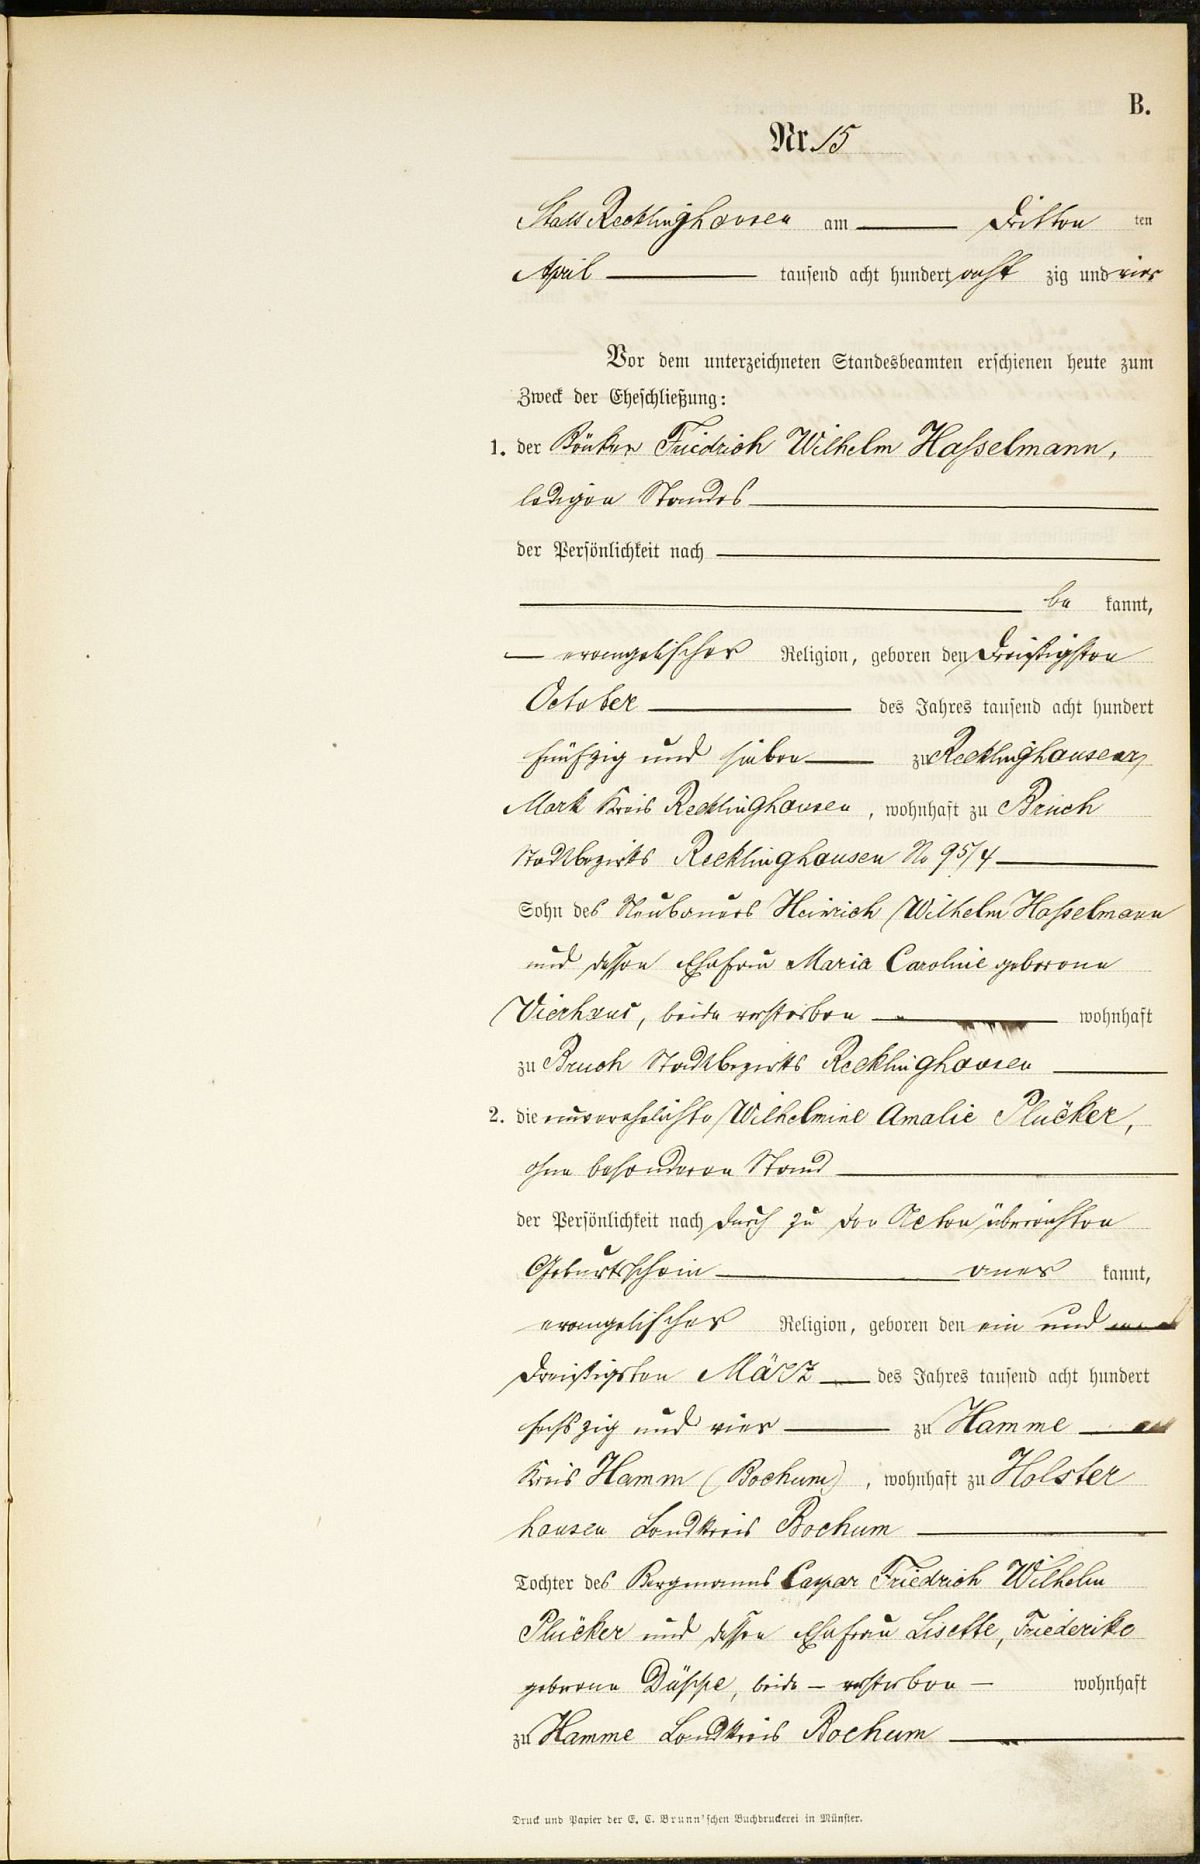 B.
Nr. 15
Stadt Recklinghausen am dritten ten
April tausend acht hundert acht zig und vier
Vor dem unterzeichneten Standesbeamten erschienen heute zum
Zweck der Eheschließung:
1. der Friedrich Wilhelm Hasselmann,
ledigen Standes
der Persönlichkeit nach
be kannt,
evangelischer Religion, geboren den dreißigsten
October des Jahres tausend acht hundert
fünfzig und sieben zu Recklinghausen
Mark Kreis Recklinghausen, wohnhaft zu Bruch
Stadtbezirks Recklinghausen No 95/4
Sohn des Neubauers Heinrich Wilhelm Hasselmann
und dessen Ehefrau Maria Caroline geborene
Vierhaus, beide verstorben wohnhaft
zu Bruch Stadtbezirks Recklinghausen
2. die unverehelichte Wilhelmine Amalie Plücker,
ohne besonderen Stand
der Persönlichkeit nach durch zu den Acten überreichten
Geburtsschein aner kannt,
evangelischer Religion, geboren den ein und
dreißigsten März des Jahres tausend acht hundert
sechszig und vier zu Hamme
Kreis Hamm (Bochum), wohnhaft zu Holster
hausen Landkreis Bochum
Tochter des Bergmanns Caspar Friedrich Wilhelm
Plücker und dessen Ehefrau Lisette, Friederike
geborene Düppe, beide – verstorben – wohnhaft
zu Hamme Landkreis Bochum
Druck und Papier der E. C. Brunn'schen Buchdruckerei in Münster.